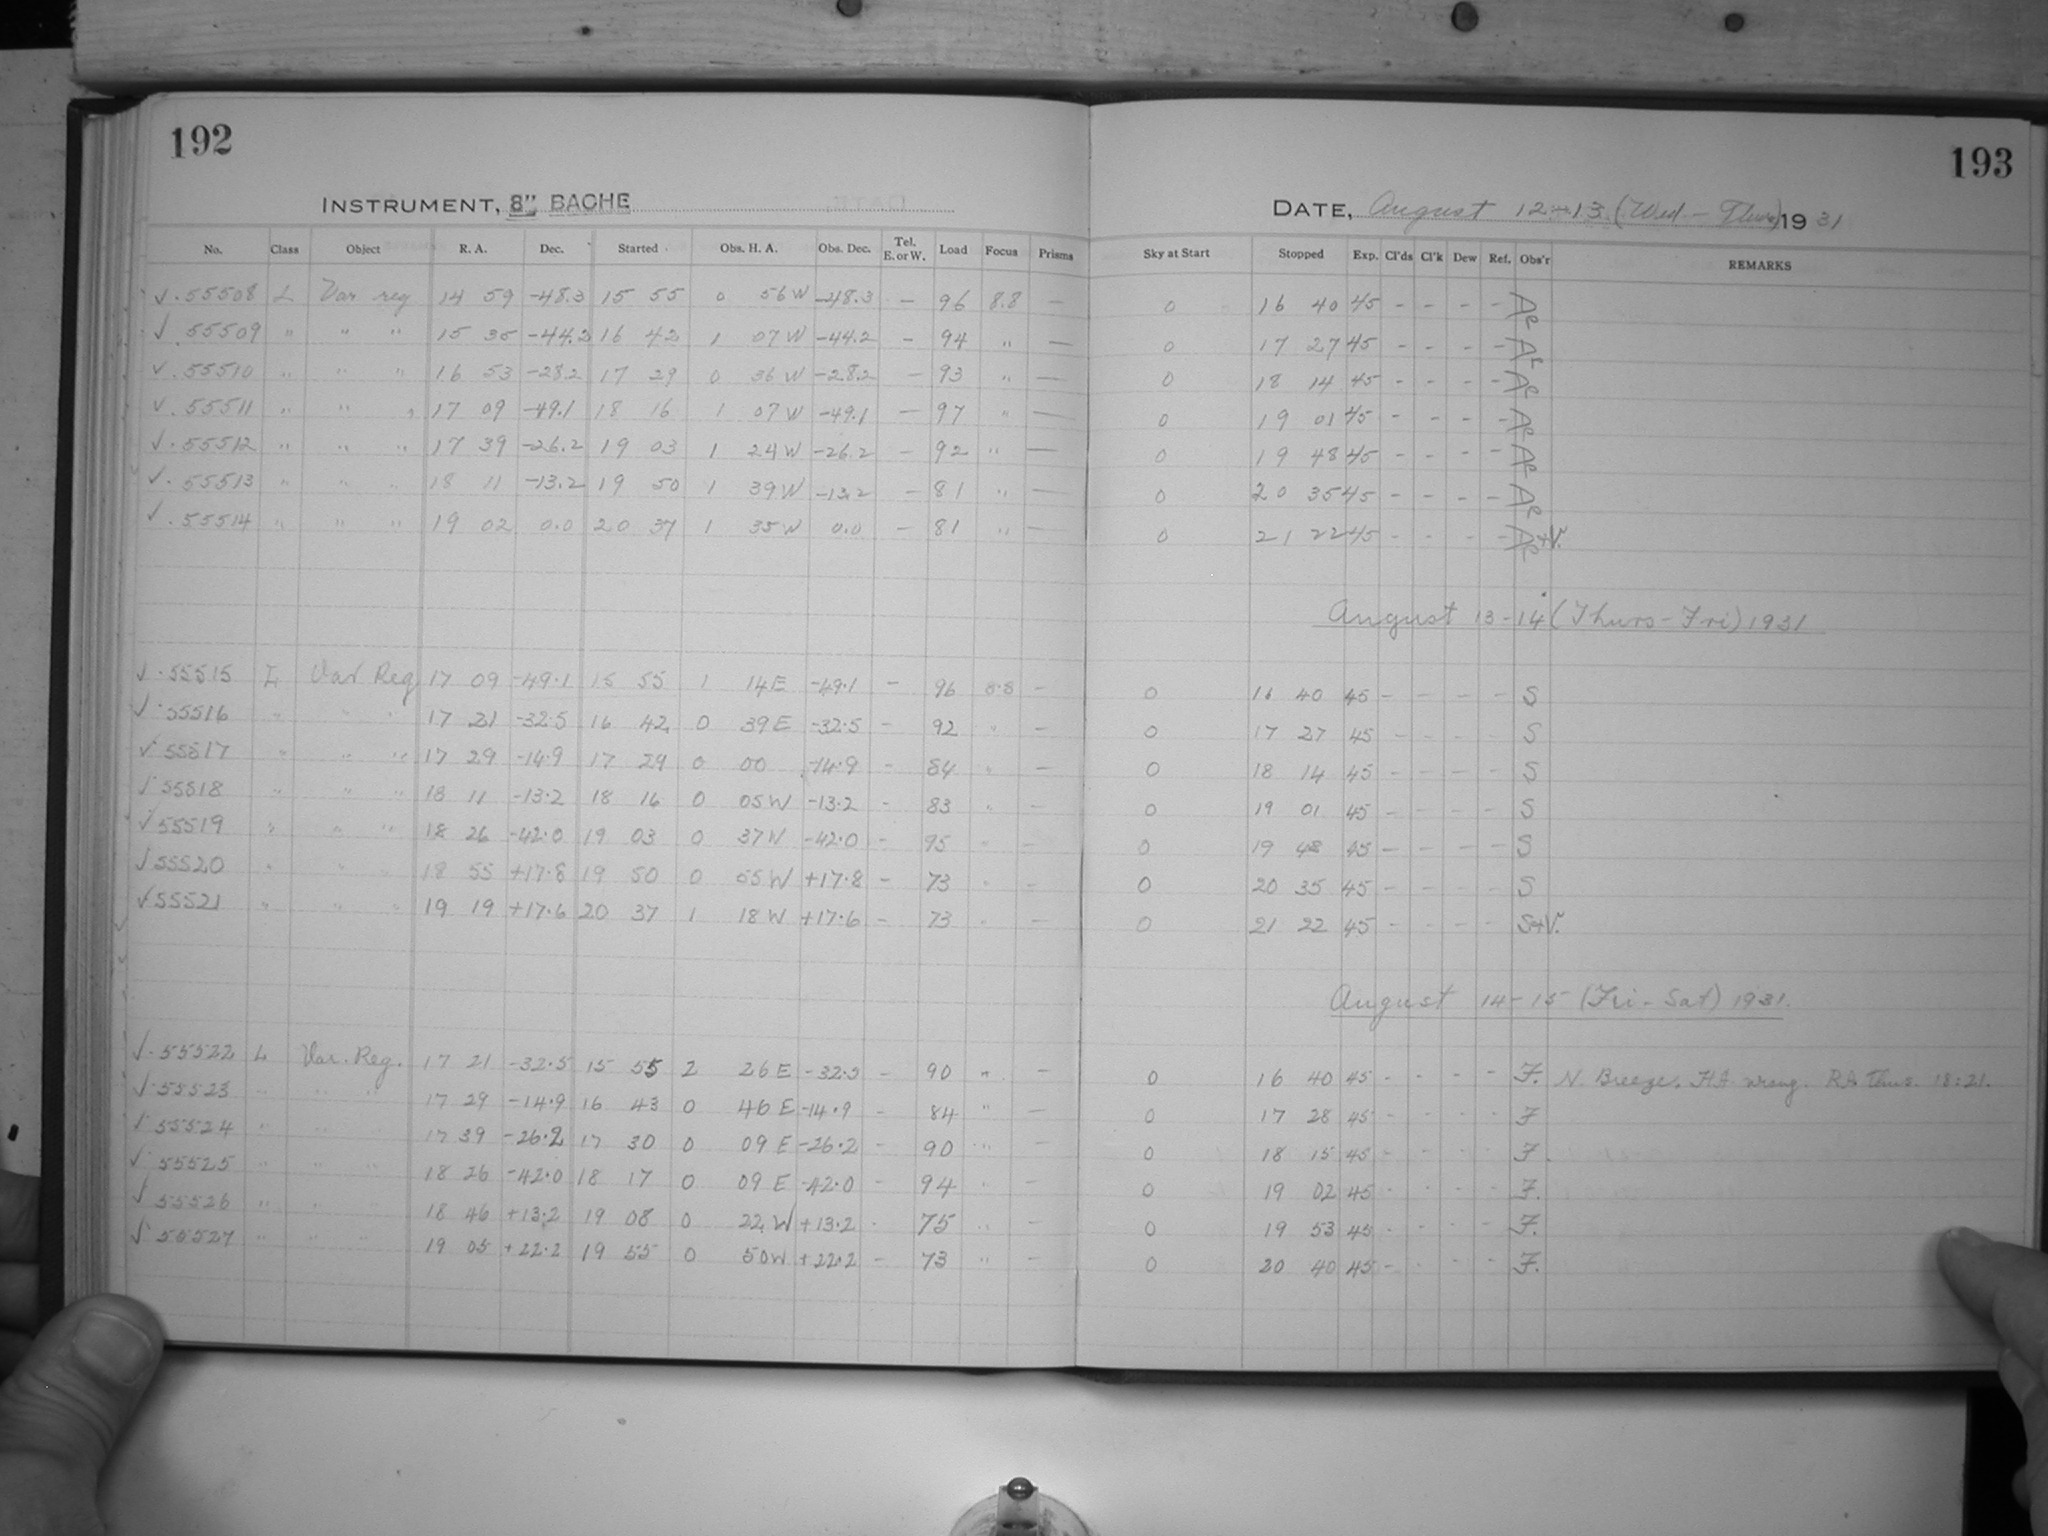 192
INSTRUMENT, 8" BACHE
No. Class Object R. A. Dec. Started Obs. H. A. Obs. Dec. Tel. E. or W. Load Focus Prisms
√ . 55508 L Var reg 14 59 -48.3 15 55 0 56 W -48.3 - 96 8.8 —
√ . 55509 " " " 15 35 -44.2 16 42 1 07 W -44.2 - 94 " —
√ . 55510 " " " 16 53 -28.2 17 29 0 36 W -28.2 - 93 " —
√ . 55511 " " " 17 09 -49.1 18 16 1 07 W -49.1 - 97 " —
√ . 55512 " " " 17 39 -26.2 19 03 1 24 W -26.2 - 92 " —
√ . 55513 " " " 18 11 -13.2 19 50 1 39 W -13.2 - 81 " —
√ . 55514 " " " 19 02 0.0 20 37 1 35 W 0.0 - 81 " —
√ . 55515 L Var Reg 17 09 -49.1 15 55 1 14 E -49.1 - 96 8.8 -
√ . 55516 " " " 17 21 -32.5 16 42 0 39 E -32.5 - 92 " -
√ 55517 " " " 17 29 -14.9 17 29 0 00 -14.9 - 84 " -
√ 55518 " " " 18 11 -13.2 18 16 0 05 W -13.2 - 83 " -
√ 55519 " " " 18 26 -42.0 19 03 0 37 W -42.0 - 95 " -
√ 55520 " " " 18 55 +17.8 19 50 0 55 W +17.8 - 73 " -
√ 55521 " " " 19 19 +17.6 20 37 1 18 W +17.6 - 73 " -
√ . 55522 L Var. Reg. 17 21 -32.5 15 55 2 26 E -32.5 - 90 " -
√ . 55523 " " " 17 29 -14.9 16 43 0 46 E -14.9 - 84 " -
√ 55524 " " " 17 39 -26.2 17 30 0 09 E -26.2 - 90 " -
√ 55525 " " " 18 26 -42.0 18 17 0 09 E -42.0 - 94 " -
√ 55526 " " " 18 46 +13.2 19 08 0 22 W +13.2 - 75 " -
√ 55527 " " " 19 05 +22.2 19 55 0 50 W +22.2 - 73 " -
193
DATE, August 12-13 (Wed - Thurs) 1931
Sky at Start Stopped Exp. Cl'ds Cl'k Dew Ref. Obs'r REMARKS
0 16 40 45 - - - -
0 17 27 45 - - - -
0 18 14 45 - - - -
0 19 01 45 - - - -
0 19 48 45 - - - -
0 20 35 45 - - - -
0 21 22 45 - - - - +V.
August 13-14 (Thurs-Fri) 1931
0 16 40 45 - - - - S
0 17 27 45 - - - - S
0 18 14 45 - - - - S
0 19 01 45 - - - - S
0 19 48 45 - - - - S
0 20 35 45 - - - - S
0 21 22 45 - - - - S+V.
August 14-15 (Fri-Sat) 1931.
0 16 40 45 - - - - F. N. Breeze. HA wrong. RA thus. 18:21.
0 17 28 45 - - - - F
0 18 15 45 - - - - F.
0 19 02 45 - - - - F.
0 19 53 45 - - - - F.
0 20 40 45 - - - - F.